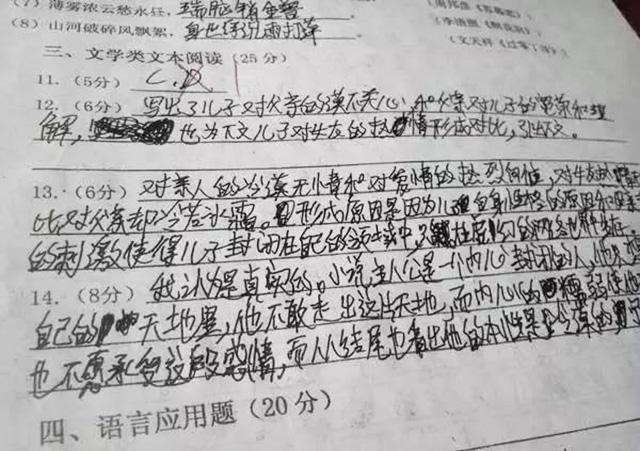 (7) 薄雾浓云愁永昼,瑞脑销金兽
(8) 山河破碎风飘絮,身世浮沉雨打萍
(文天祥《过零丁洋》)
三、文学类文本阅读(25分)
11.(5分) C.D
12.(6分) 写出了儿子对父亲的漠不关心,和父亲对儿子的宽容和理
解,也为下文儿子对女友的热情形成对比,引出下文。
13.(6分) 对亲人的冷漠无情和对爱情的热烈向往,对女友
比对父亲却冷若冰霜。形成原因是因为儿自身性格的原因和
的刺激使得儿子封闭在自己的生活中
14.(8分) 我认为是真实的。小说主人公是一个内心封闭的人,他
自己的天地里,他不敢走出这片天地,而内心的
也不愿承受这段感情,而从结尾也看出他的本性是
四、语言应用题(20分)